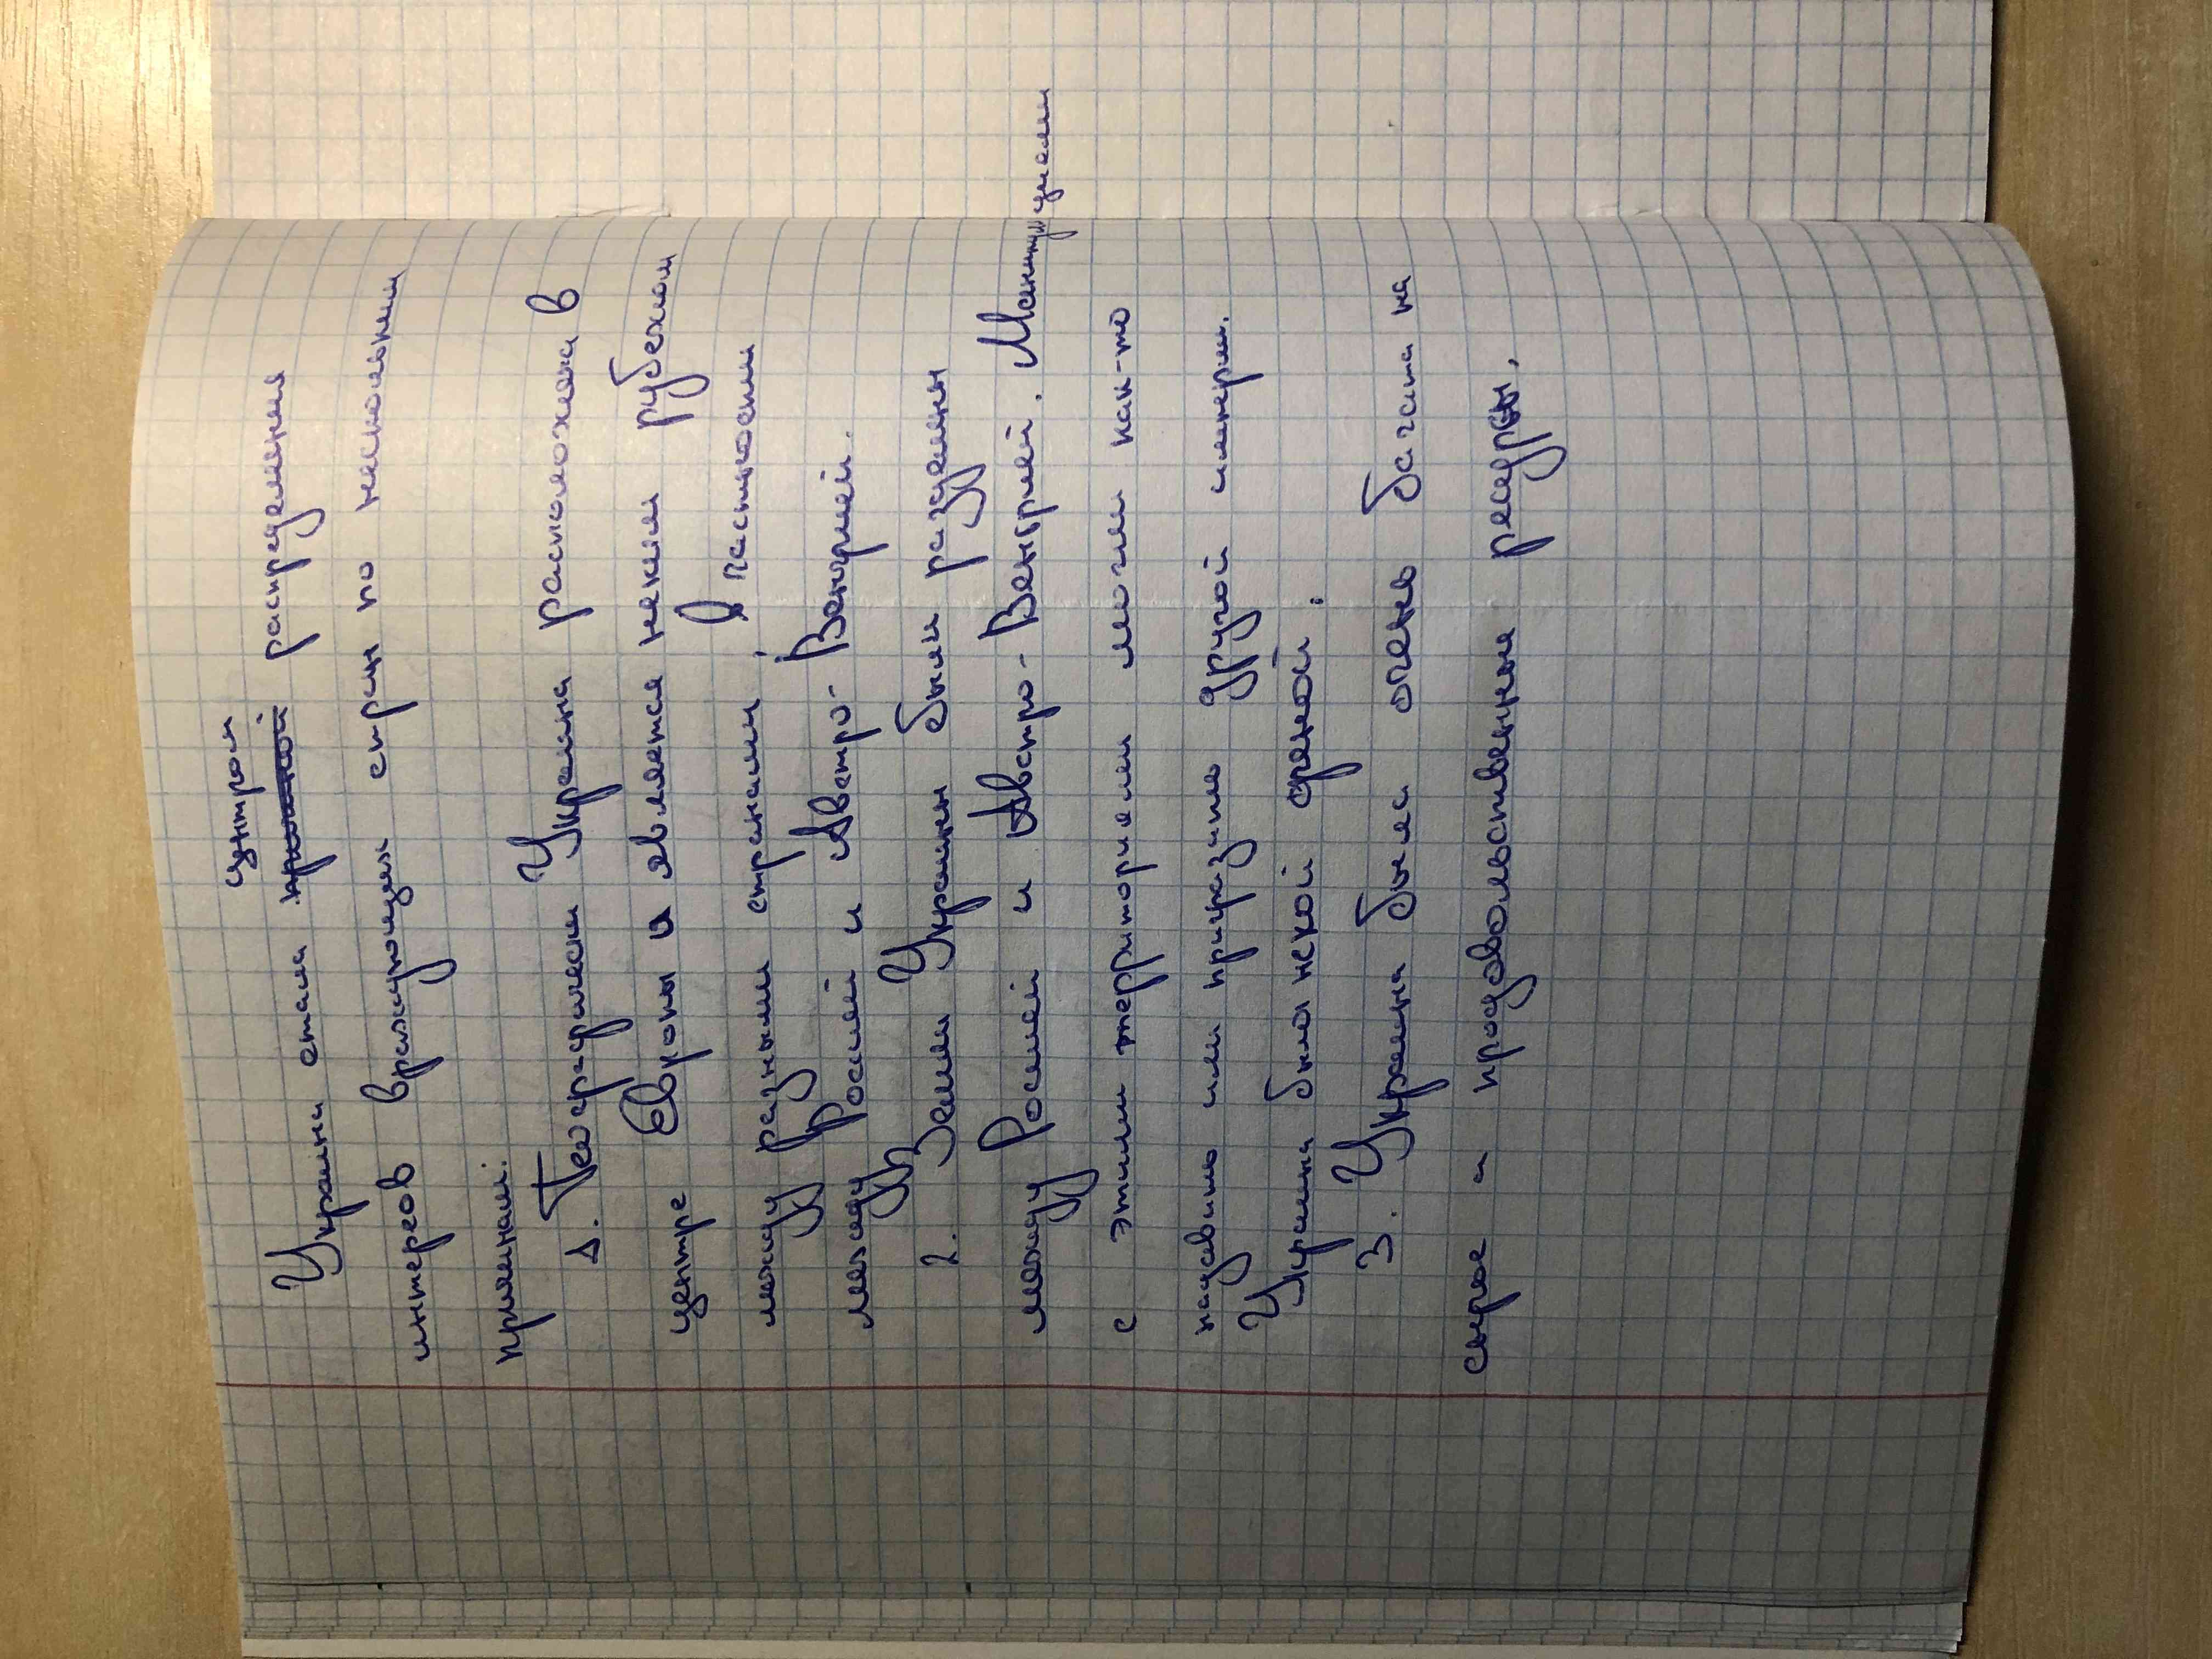 центром
Украина стала причиной распределения
интересов враждующих стран по нескольким
причинам:
1. Географически Украина расположена в
центре Европы и является неким рубежом
между разными странами, в частности
между Россией и Австро-Венгрией.
2. Земли Украины были разделены
между Россией и Австро-Венгрией. Манипуляции
с этими территориями могли как-то
надавить или пригрозить другой империи.
Украина была некой ареной.
3. Украина была очень богата на
сырье и продовольственные ресурсы.